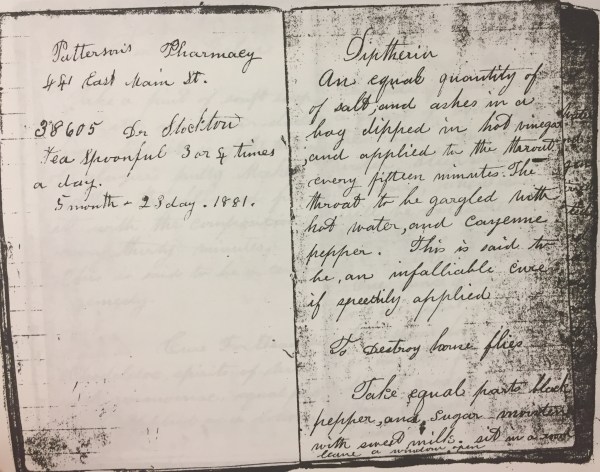 Patterson's Pharmacy
441 East Main St.
38605 Dr Stockton
Tea Spoonful 3 or 4 times
a day.
5 month - 23 day. 1881.
Diptheria
An equal quantity of
of salt, and ashes in a
bag dipped in hot vinegar
, and applied to the throat
every fifteen minutes. The
throat to be gargled with
hot water, and Cayenne
pepper. This is said to
be, an infalliable cure
if speedily applied
To Destroy house flies
Take equal parts black
pepper, and Sugar moisten
with sweet milk. sit in a room
leave a window open